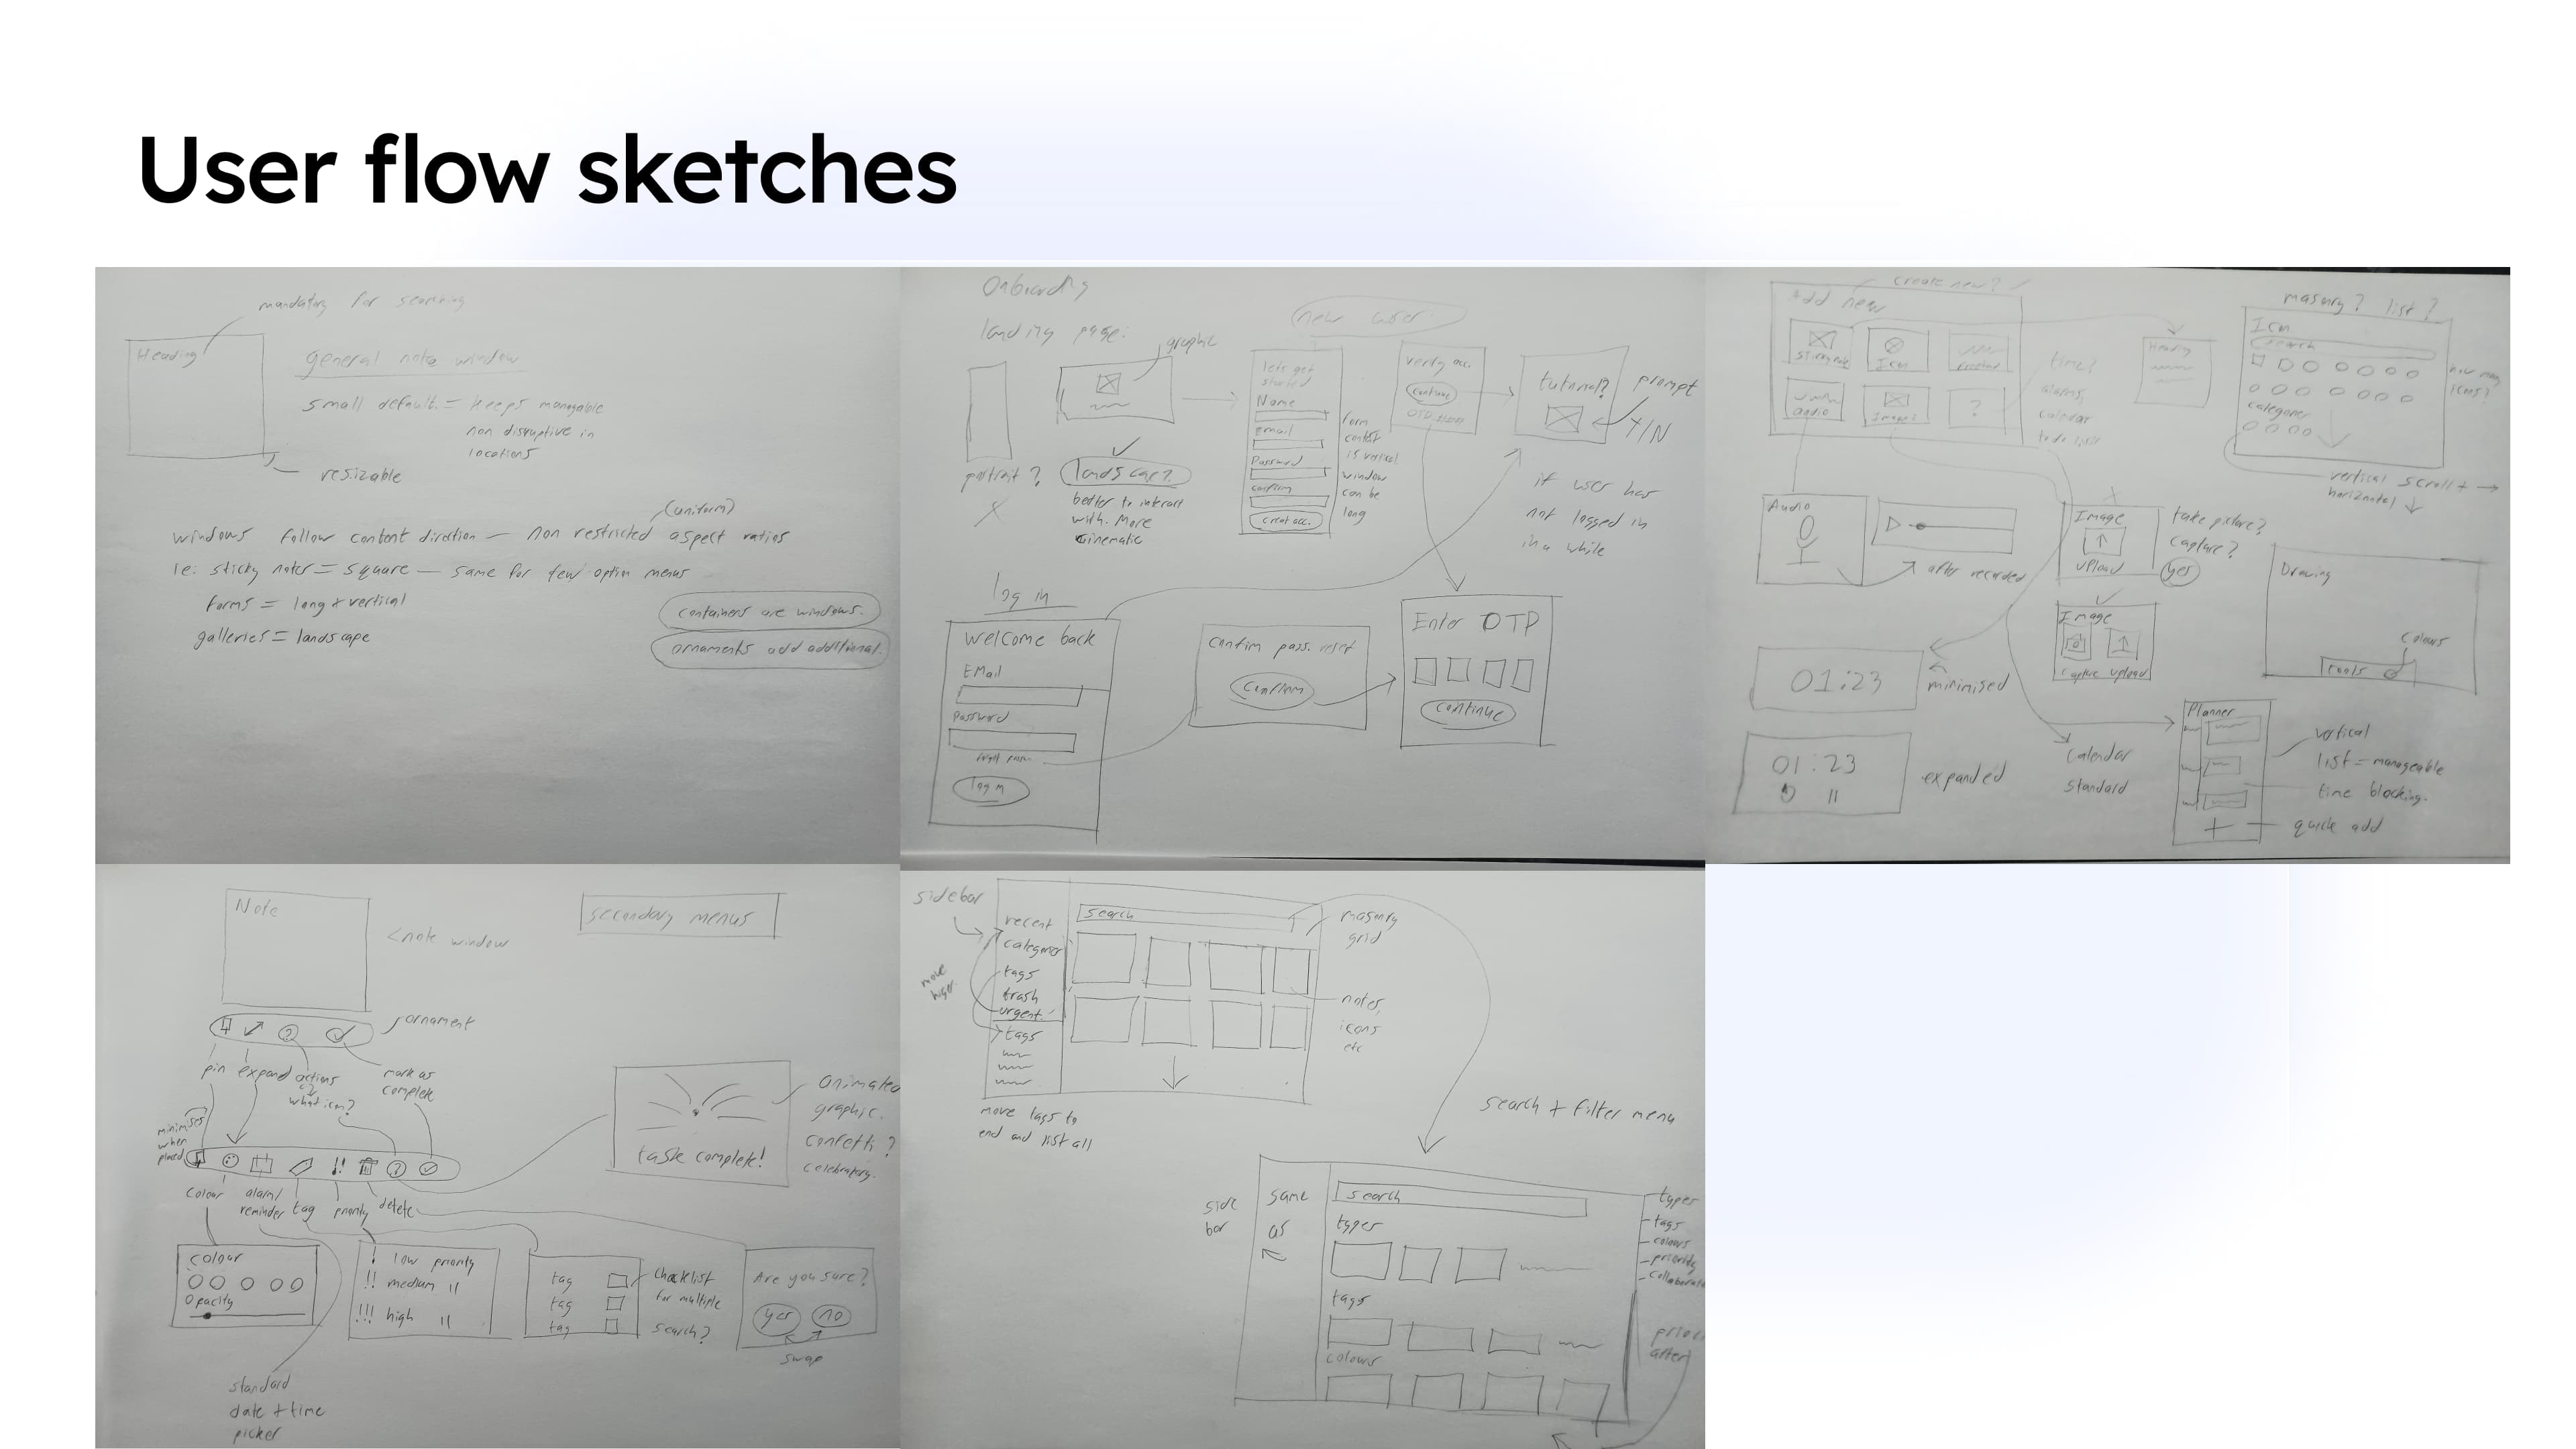 User flow sketches
mandatory for searching
Heading
general note window
small default = keeps manageable
non disruptive in
locations
resizable
(uniform)
windows follow content direction — non restricted aspect ratios
ie. sticky notes = square — same for few option menus
forms = long + vertical
galleries = landscape
containers are windows.
ornaments add additional.
Onboarding
landing page:
graphic
portrait?
landscape?
better to interact
with. More
cinematic
new user
lets get
started
Name
Email
Password
confirm
creat acc.
form
contet
is vertical
window
can be
long
verify acc.
continue
tutorial?
prompt
Y/N
if user has
not logged in
in a while
log in
welcome back
EMail
Password
log in
confirm pass. reset
confirm
Enter OTP
continue
create new?
Add new
Icon
audio
Image
?
time!
alarms,
calendar
to do lists
Heading
masonry? list?
Icon
search
categories
how many
icons?
vertical scroll +
horizontal
Audio
after recorded
Image
upload
take picture?
capture?
yes
Image
capture upload
Drawing
colours
tools
01:23
minimised
01:23
expanded
calendar
standard
Planner
vertical
list = manageable
time blocking.
quick add
Note
note window
secondary menus
ornament
pin
expand
actions
what icon?
mark as
complete
minimises
when
placed
colour
alarm/
reminder
tag
priority
delete
task complete!
animated
graphic.
confetti?
celebratory.
colour
Opacity
! low priority
!! medium "
!!! high "
tag
tag
tag
checklist
for multiple
search?
Are you sure?
yes
no
swap
standard
date + time
picker
sidebar
recent
categories
tags
trash
urgent
tags
search
masonry
grid
notes,
icons
etc
move tags to
end and list all
search + filter menu
side
bar
same
as
search
types
tags
colours
types
tags
colours
priority